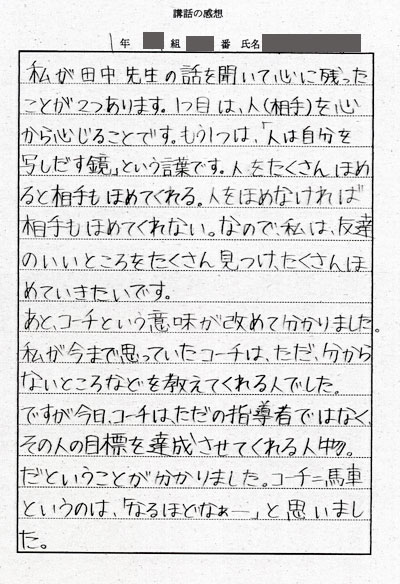 講話の感想
1年 組 番 氏名
私が田中先生の話を聞いて心に残った
ことが2つあります。1つ目は、人(相手)を心
から心じることです。もう1つは、「人は自分を
写しだす鏡」という言葉です。人をたくさんほめ
ると相手もほめてくれる。人をほめなければ
相手もほめてくれない。なので、私は、友達
のいいところをたくさん見つけ、たくさんほ
めていきたいです。
あと、コーチという意味が改めて分かりました。
私が今まで思っていたコーチは、ただ、分から
ないところなどを教えてくれる人でした。
ですが今日、コーチは、ただの指導者ではなく、
その人の目標を達成させてくれる人物。
だということが分かりました。コーチ=馬車
というのは、「なるほどなぁー」と思いまし
た。